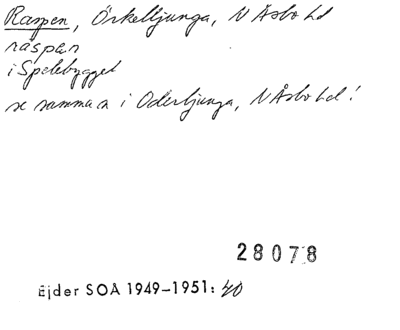 Raspen, Örkelljunga, N Åsbo hd
raspan
i Spelebygget
se namnen i Oderljunga, N Åsbo hd!
28078
Ejder SOA 1949-1951: 40